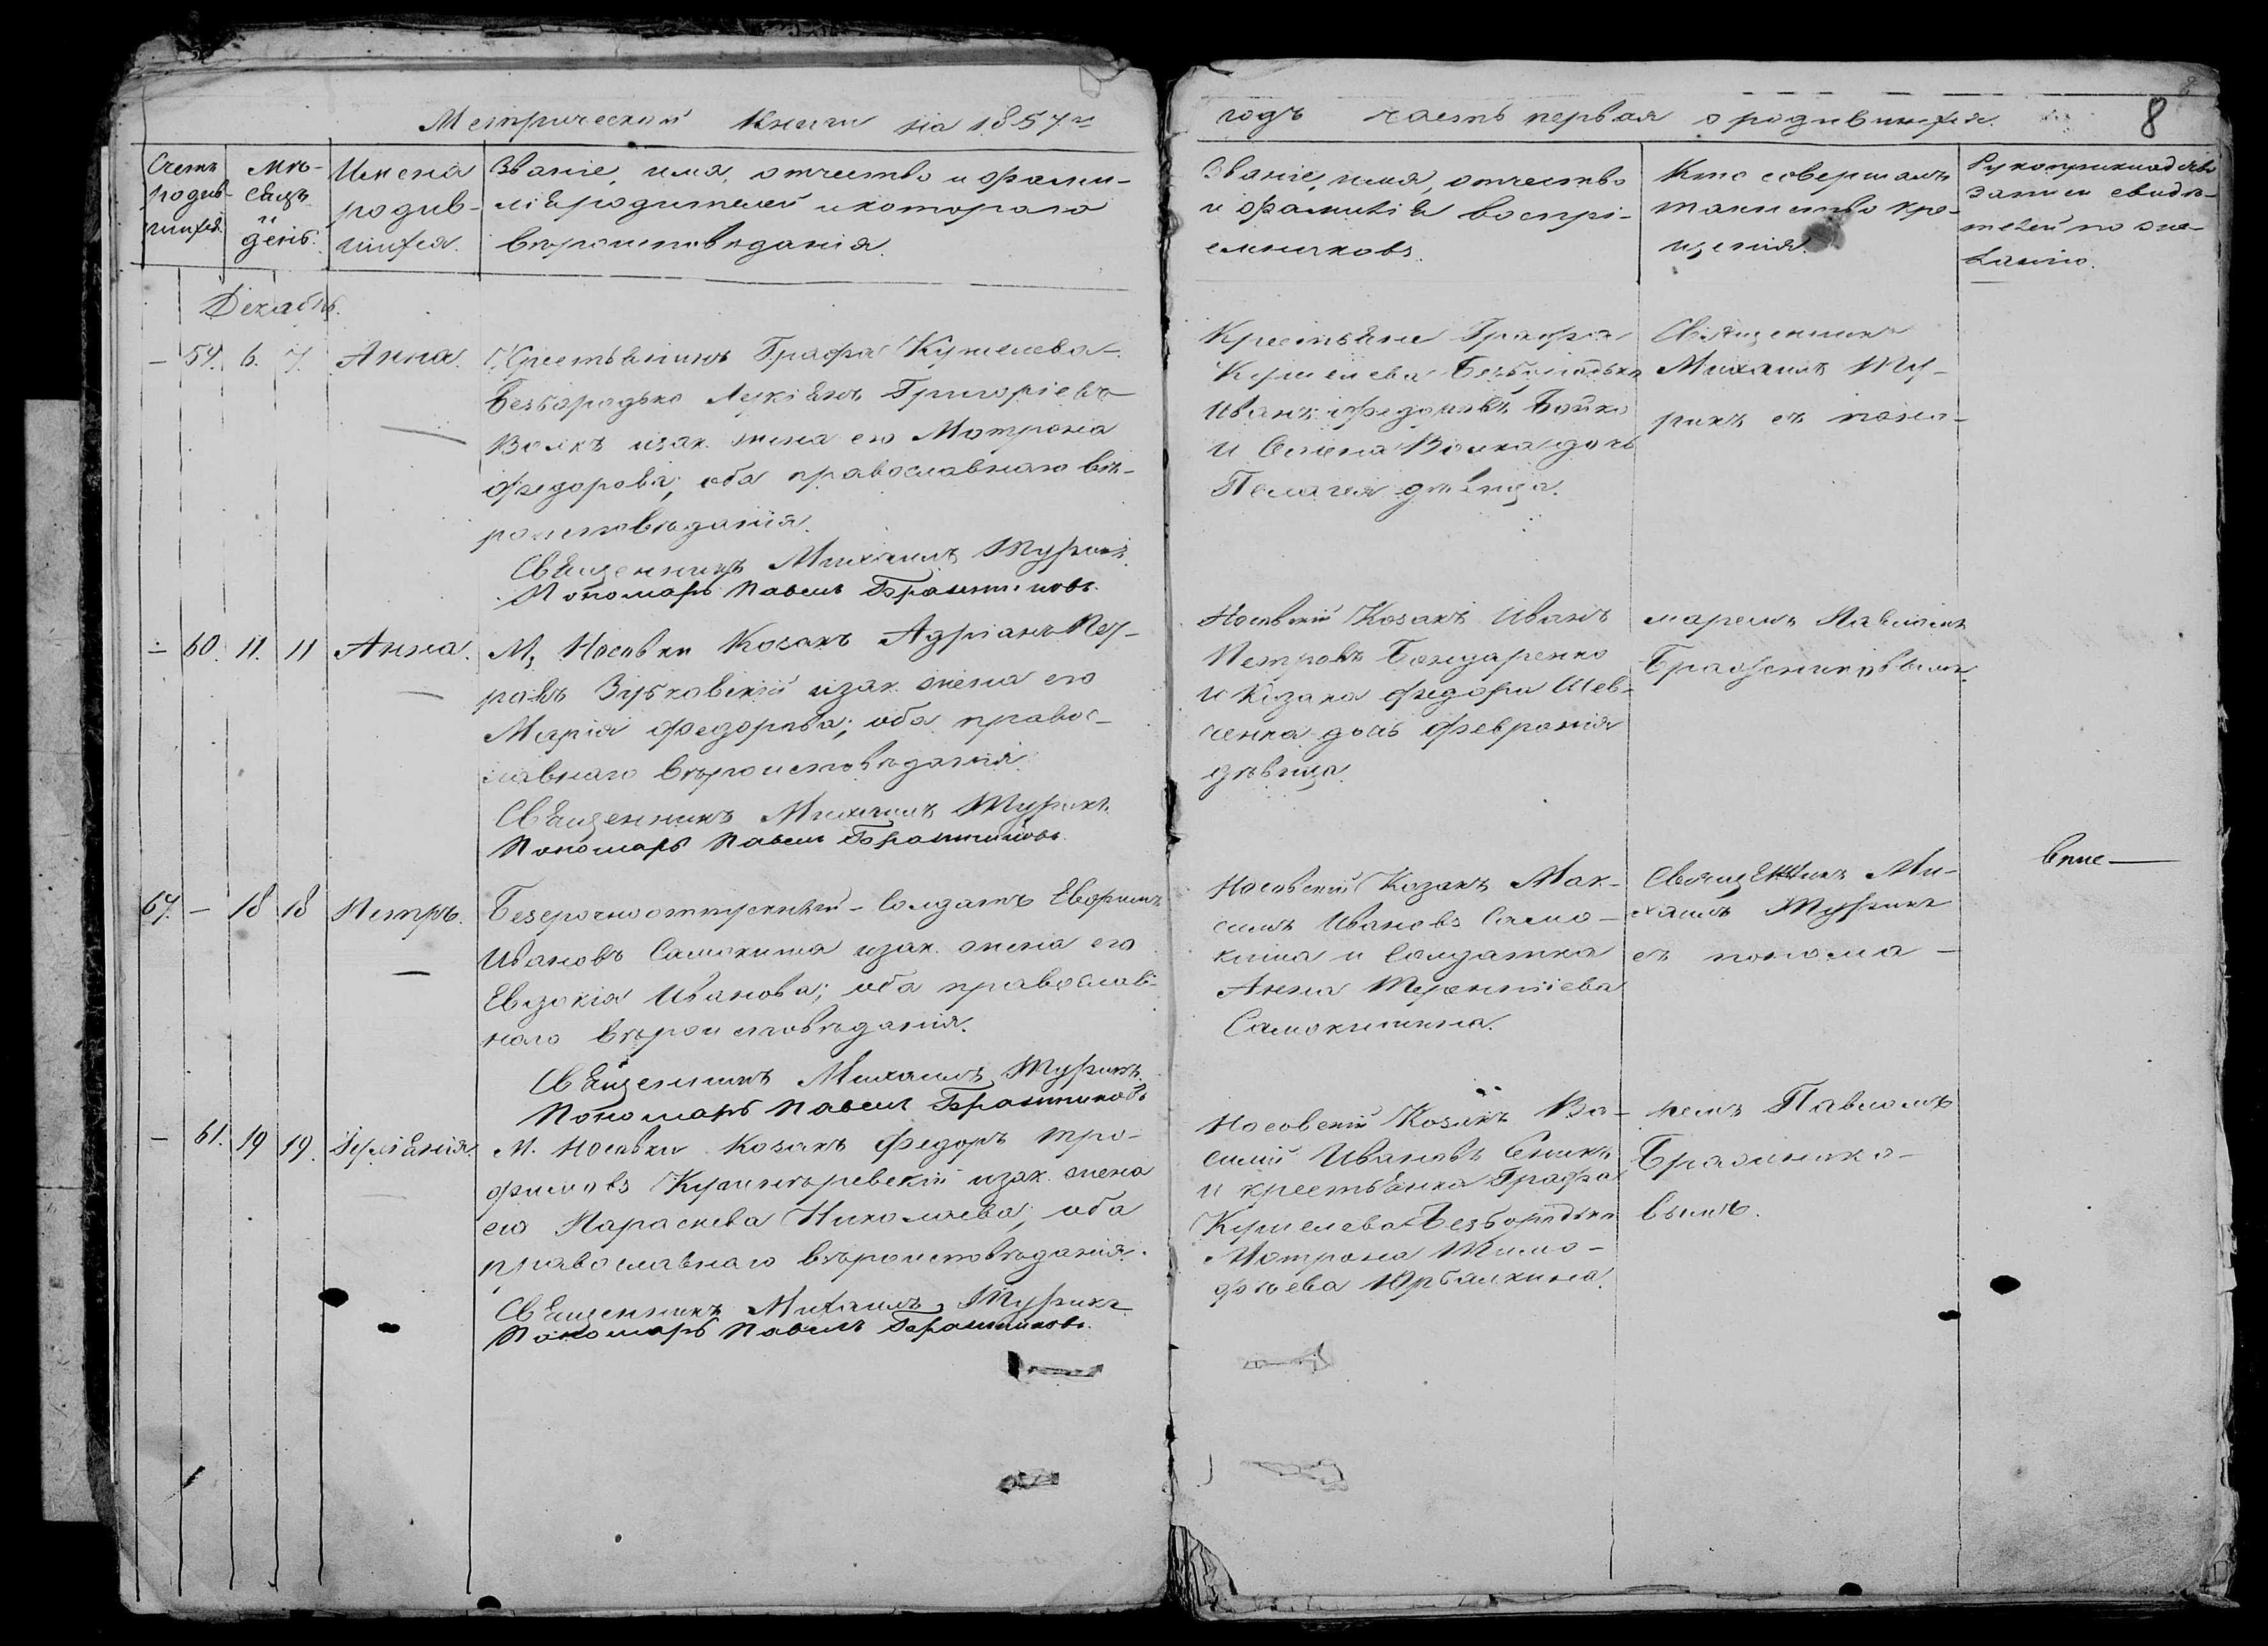 Метрической книги на 1857й
годъ часть первая о родившихся.
8
Счетъ родив-шихся.
Мѣ-сяцъ и день.
Имена
родив-
шихся.
Званіе, имя, отчество и фами-
лія родителей и котораго
вѣроисповѣданія.
Званіе, имя, отчество
и фамилія воспрі-
емниковъ.
Кто совершалъ
таинство кре-
щенія.
Рукоприкладство
записи свидѣ-
телей по же-
ланію.
Декабрь.
— 59. 6. 7. Анна.
Крестьянинъ Графа Кушелева-
Безбородько Лукіянъ Григоріевъ
Волкъ и зак. жена его Мотрона
Федорова, оба православнаго вѣ-
роисповѣданія.
Священникъ Михаилъ Турикъ.
Пономарь Павелъ Бражниковъ.
Крестьяне Графа
Кушелева Безбородька
Иванъ Федоровъ Бойко
и Волка дочь
Пелагея дѣвица.
Священникъ
Михаилъ Ту-
рикъ съ поно-
— 60. 11. 11 Анна.
М. Носовки Козакъ Адріанъ
Зубковскій и зак. жена его
Марія Федорова; оба правос-
лавнаго вѣроисповѣданія.
Священникъ Михаилъ Турикъ.
Пономарь Павелъ Бражниковъ.
Носовскій Козакъ Иванъ
Петровъ Бондаренко
и Козака Федора Шев-
ченка дочь Февронія
дѣвица.
маремъ Павломъ
Бражниковымъ
67. — 18 18 Петръ.
Безсрочноотпускный Солдатъ
Ивановъ Самокиша и зак. жена его
Евдокія Иванова; оба православ-
наго вѣроисповѣданія.
Священникъ Михаилъ Турикъ.
Пономарь Павелъ Бражниковъ
Носовскій Козакъ Мак-
симъ Ивановъ Само-
киша и Солдатка
Анна Терентіева
Самокишина.
Священникъ Ми-
хаилъ Турикъ
съ понома-
— 61. 19 19. Іуліанія.
М. Носовки Козакъ Федоръ Тро-
фимовъ и зак. жена
его Параскева Николаева, оба
православнаго вѣроисповѣданія.
Священникъ Михаилъ Турикъ
Пономарь Павелъ Бражниковъ.
Носовскій Козакъ Ва-
силій Ивановъ
и крестьянка Графа
Кушелева-Безбородька
Мотрона Тимо-
фѣева
ремъ Павломъ
Бражнико-
вымъ.